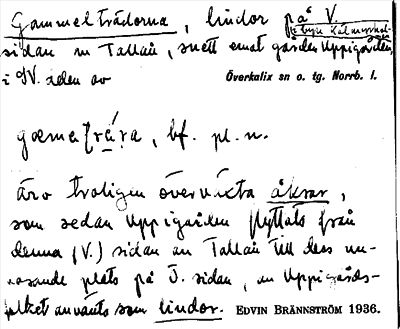 Gammelträdorna, lindor på V.
i byn Kälmersmark
sidan av Tallån, snett emot gården Uppigården,
i SV. delen av
Överkalix sn o. tg. Norrb. l.
gœmaʈrą́ra, bf. pl. n.
äro troligen övervuxta åkrar,
som sedan Uppigården flyttats från
denna (V.) sidan av Tallån till dess nu-
varande plats på Ö. sidan, av Uppigårds-
folket använts som lindor. EDVIN BRÄNNSTRÖM 1936.